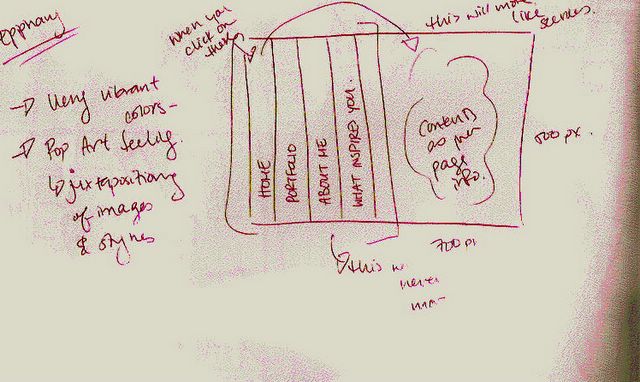 Epphany
→ Very vibrant
colors -
→ Pop Art feeling.
↳ juxtapositioning
of images
& styles
when you
click on
these
this will move
like
scenes.
HOME
PORTFOLIO
ABOUT ME
WHAT INSPIRES YOU.
Contents
as per
page
info.
500 px.
700 px
this
never